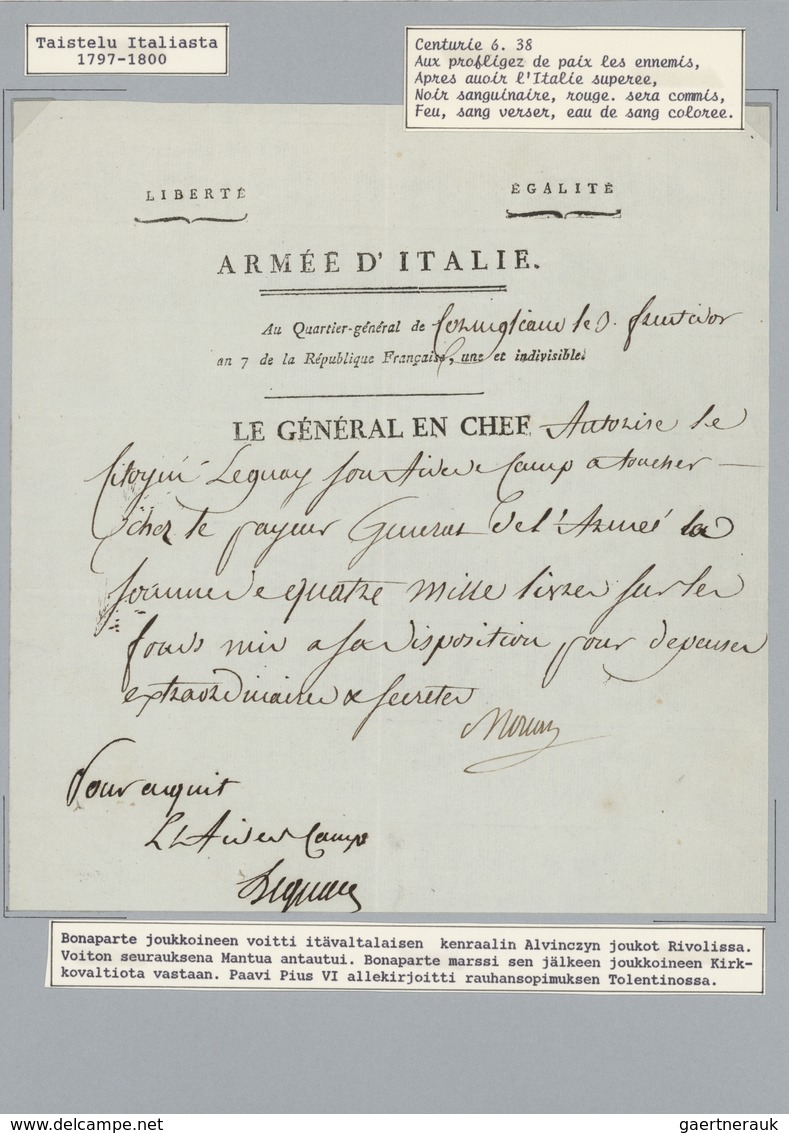 Taistelu Italiasta
1797-1800
Centurie 6. 38
Aux profligez de paix les ennemis,
Apres auoir l'Italie superee,
Noir sanguinaire, rouge. sera commis,
Feu, sang verser, eau de sang coloree.
LIBERTÉ
ÉGALITÉ
ARMÉE D'ITALIE.
Au Quartier-général de le fructidor
an 7 de la République Française, une et indivisible.
LE GÉNÉRAL EN CHEF Autorise le
Citoyen Leguay son Aide de Camp a toucher
chez le payeur General de l'Armée la
somme de quatre mille livres sur les
fonds mis a sa disposition pour depenses
extraordinaires & secretes
Moreau
Pour acquit
L'Aide de Camp
Leguay
Bonaparte joukkoineen voitti itävaltalaisen kenraalin Alvinczyn joukot Rivolissa.
Voiton seurauksena Mantua antautui. Bonaparte marssi sen jälkeen joukkoineen Kirk-
kovaltiota vastaan. Paavi Pius VI allekirjoitti rauhansopimuksen Tolentinossa.
www.delcampe.net
gaertnerauk